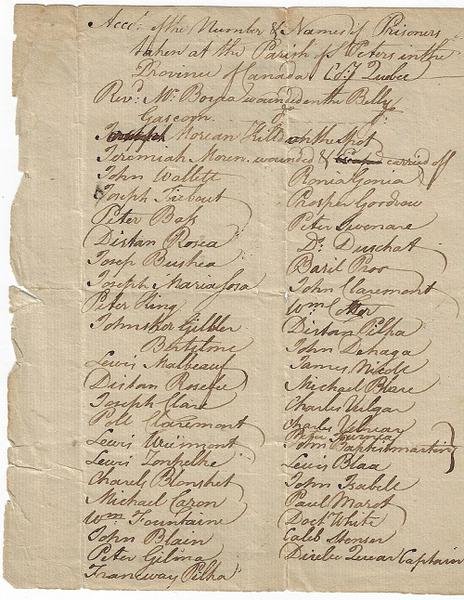 Acct. of the Number & Names of Prisoners
taken at the Parish of St Peters in the
Province of Canada Coty Quebec
Revd. Mr. Borna wounded in the Belly
Gascoon do do
Joseph Morean Killd on the Spot
Jeremiah Moren wounded & carried off
John Wallett
Joseph Ciebout
Peter Bass
Distan Rosea
Josep Bushea
Joseph Maria Josa
Peter King
John Ker Gibler
Bertelme
Lewis Malbeauf
Distom Rosefie
Joseph Clare
Poll Claremont
Lewis Wiemont
Lewis Tonpelhe
Charels Blonshet
Michael Caron
Wm. Fountaine
John Blain
Peter Gilma
Franceway Pilha
Ronia Gonia
Prosper Goodrow
Peter Sivonare
Do. Duschat
Basil Proo
John Claremont
Wm Cotter
Distom Pilha
John Dehaga
James Nicole
Michael Blare
Charles Vulgar
Charles Vebneay
John Baptesmartin
Lewis Blaa
John Isabell
Paul Marot
Doct White
Caleb Stonser
Direbe Quear Captain